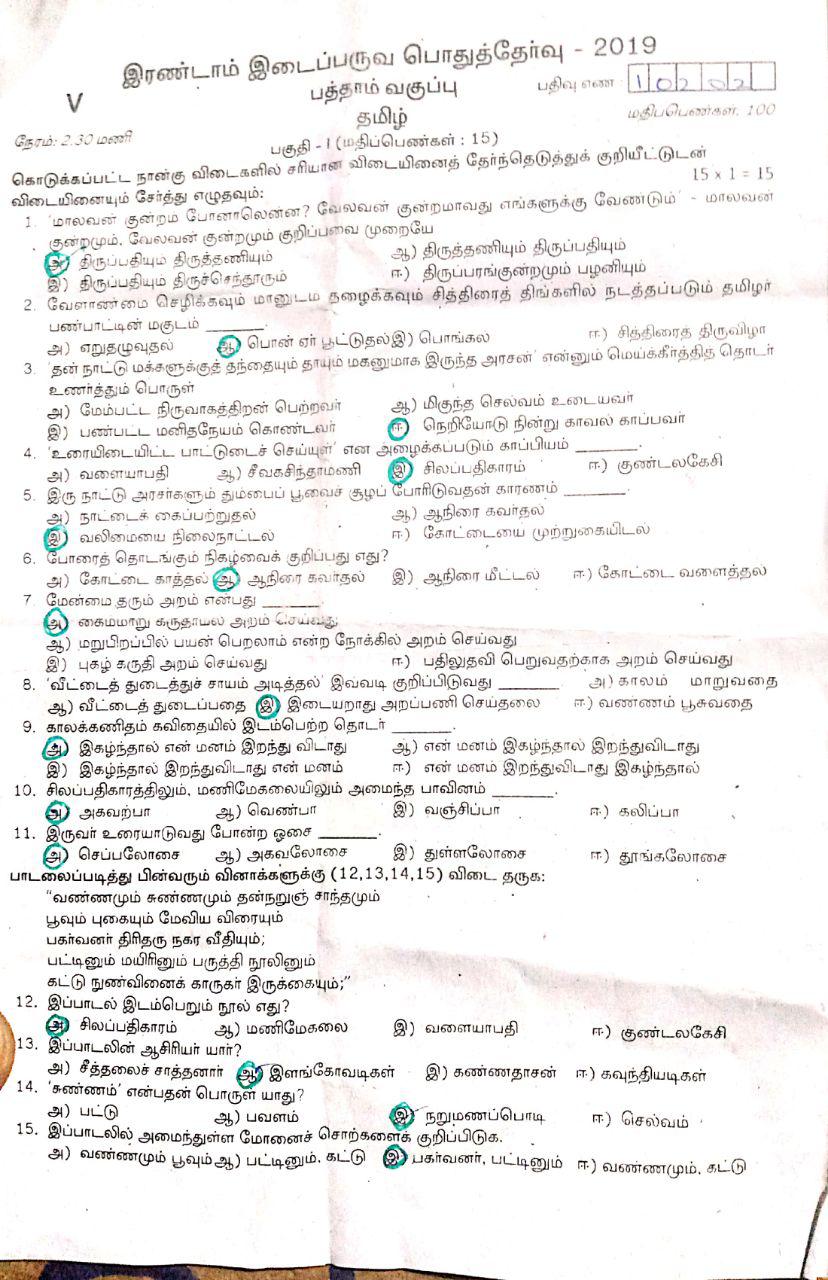 இரண்டாம் இடைப்பருவ பொதுத்தேர்வு - 2019
V
பத்தாம் வகுப்பு
பதிவு எண் : 10202
தமிழ்
மதிப்பெண்கள். 100
நேரம்: 2.30 மணி
பகுதி - I (மதிப்பெண்கள் : 15)
கொடுக்கப்பட்ட நான்கு விடைகளில் சரியான விடையினைத் தேர்ந்தெடுத்துக் குறியீட்டுடன்
விடையினையும் சேர்த்து எழுதவும்: 15 x 1 = 15
1. 'மாலவன் குன்றம் போனாலென்ன? வேலவன் குன்றமாவது எங்களுக்கு வேண்டும்' - மாலவன்
குன்றமும், வேலவன் குன்றமும் குறிப்பவை முறையே
அ) திருப்பதியும் திருத்தணியும் ஆ) திருத்தணியும் திருப்பதியும்
இ) திருப்பதியும் திருச்செந்தூரும் ஈ) திருப்பரங்குன்றமும் பழனியும்
2. வேளாண்மை செழிக்கவும் மானுடம் தழைக்கவும் சித்திரைத் திங்களில் நடத்தப்படும் தமிழர்
பண்பாட்டின் மகுடம் ______.
அ) எறுதழுவுதல் ஆ) பொன் ஏர் பூட்டுதல் இ) பொங்கல் ஈ) சித்திரைத் திருவிழா
3. 'தன் நாட்டு மக்களுக்குத் தந்தையும் தாயும் மகனுமாக இருந்த அரசன்' என்னும் மெய்க்கீர்த்தித் தொடர்
உணர்த்தும் பொருள்
அ) மேம்பட்ட நிருவாகத்திறன் பெற்றவர் ஆ) மிகுந்த செல்வம் உடையவர்
இ) பண்பட்ட மனிதநேயம் கொண்டவர் ஈ) நெறியோடு நின்று காவல் காப்பவர்
4. 'உரையிடையிட்ட பாட்டுடைச் செய்யுள்' என அழைக்கப்படும் காப்பியம் ______.
அ) வளையாபதி ஆ) சீவகசிந்தாமணி இ) சிலப்பதிகாரம் ஈ) குண்டலகேசி
5. இரு நாட்டு அரசர்களும் தும்பைப் பூவைச் சூழப் போரிடுவதன் காரணம் ______.
அ) நாட்டைக் கைப்பற்றுதல் ஆ) ஆநிரை கவர்தல்
இ) வலிமையை நிலைநாட்டல் ஈ) கோட்டையை முற்றுகையிடல்
6. போரைத் தொடங்கும் நிகழ்வைக் குறிப்பது எது?
அ) கோட்டை காத்தல் ஆ) ஆநிரை கவர்தல் இ) ஆநிரை மீட்டல் ஈ) கோட்டை வளைத்தல்
7. மேன்மை தரும் அறம் என்பது ______
அ) கைம்மாறு கருதாமல் அறம் செய்வது
ஆ) மறுபிறப்பில் பயன் பெறலாம் என்ற நோக்கில் அறம் செய்வது
இ) புகழ் கருதி அறம் செய்வது ஈ) பதிலுதவி பெறுவதற்காக அறம் செய்வது
8. 'வீட்டைத் துடைத்துச் சாயம் அடித்தல்' இவ்வடி குறிப்பிடுவது ______ அ) காலம் மாறுவதை
ஆ) வீட்டைத் துடைப்பதை இ) இடையறாது அறப்பணி செய்தலை ஈ) வண்ணம் பூசுவதை
9. காலக்கணிதம் கவிதையில் இடம்பெற்ற தொடர் ______.
அ) இகழ்ந்தால் என் மனம் இறந்து விடாது ஆ) என் மனம் இகழ்ந்தால் இறந்துவிடாது
இ) இகழ்ந்தால் இறந்துவிடாது என் மனம் ஈ) என் மனம் இறந்துவிடாது இகழ்ந்தால்
10. சிலப்பதிகாரத்திலும், மணிமேகலையிலும் அமைந்த பாவினம் ______.
அ) அகவற்பா ஆ) வெண்பா இ) வஞ்சிப்பா ஈ) கலிப்பா
11. இருவர் உரையாடுவது போன்ற ஓசை ______.
அ) செப்பலோசை ஆ) அகவலோசை இ) துள்ளலோசை ஈ) தூங்கலோசை
பாடலைப்படித்து பின்வரும் வினாக்களுக்கு (12,13,14,15) விடை தருக:
"வண்ணமும் சுண்ணமும் தன்நறுஞ் சாந்தமும்
பூவும் புகையும் மேவிய விரையும்
பகர்வனர் திரிதரு நகர வீதியும்;
பட்டினும் மயிரினும் பருத்தி நூலினும்
கட்டு நுண்வினைக் காருகர் இருக்கையும்;"
12. இப்பாடல் இடம்பெறும் நூல் எது?
அ) சிலப்பதிகாரம் ஆ) மணிமேகலை இ) வளையாபதி ஈ) குண்டலகேசி
13. இப்பாடலின் ஆசிரியர் யார்?
அ) சீத்தலைச் சாத்தனார் ஆ) இளங்கோவடிகள் இ) கண்ணதாசன் ஈ) கவுந்தியடிகள்
14. 'சுண்ணம்' என்பதன் பொருள் யாது?
அ) பட்டு ஆ) பவளம் இ) நறுமணப்பொடி ஈ) செல்வம்
15. இப்பாடலில் அமைந்துள்ள மோனைச் சொற்களைக் குறிப்பிடுக.
அ) வண்ணமும் பூவும் ஆ) பட்டினும். கட்டு இ) பகர்வனர், பட்டினும் ஈ) வண்ணமும், கட்டு